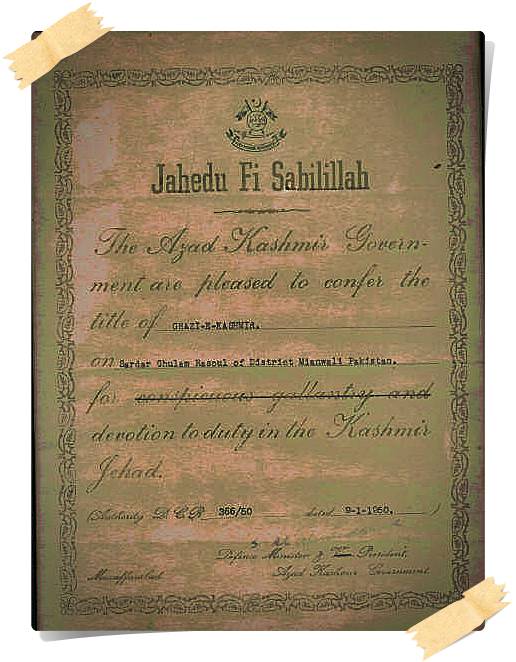 Jahedu Fi Sabilillah
The Azad Kashmir Govern-
ment are pleased to confer the
title of GHAZI-E-KASHMIR.
on Sardar Ghulam Rasoul of District Mianwali Pakistan.
for conspicuous gallantry and
devotion to duty in the Kashmir
Jehad.
(Authority D.C.R 366/50 dated 9-1-1950.)
Defence Minister & President,
Muzaffarabad Azad Kashmir Government